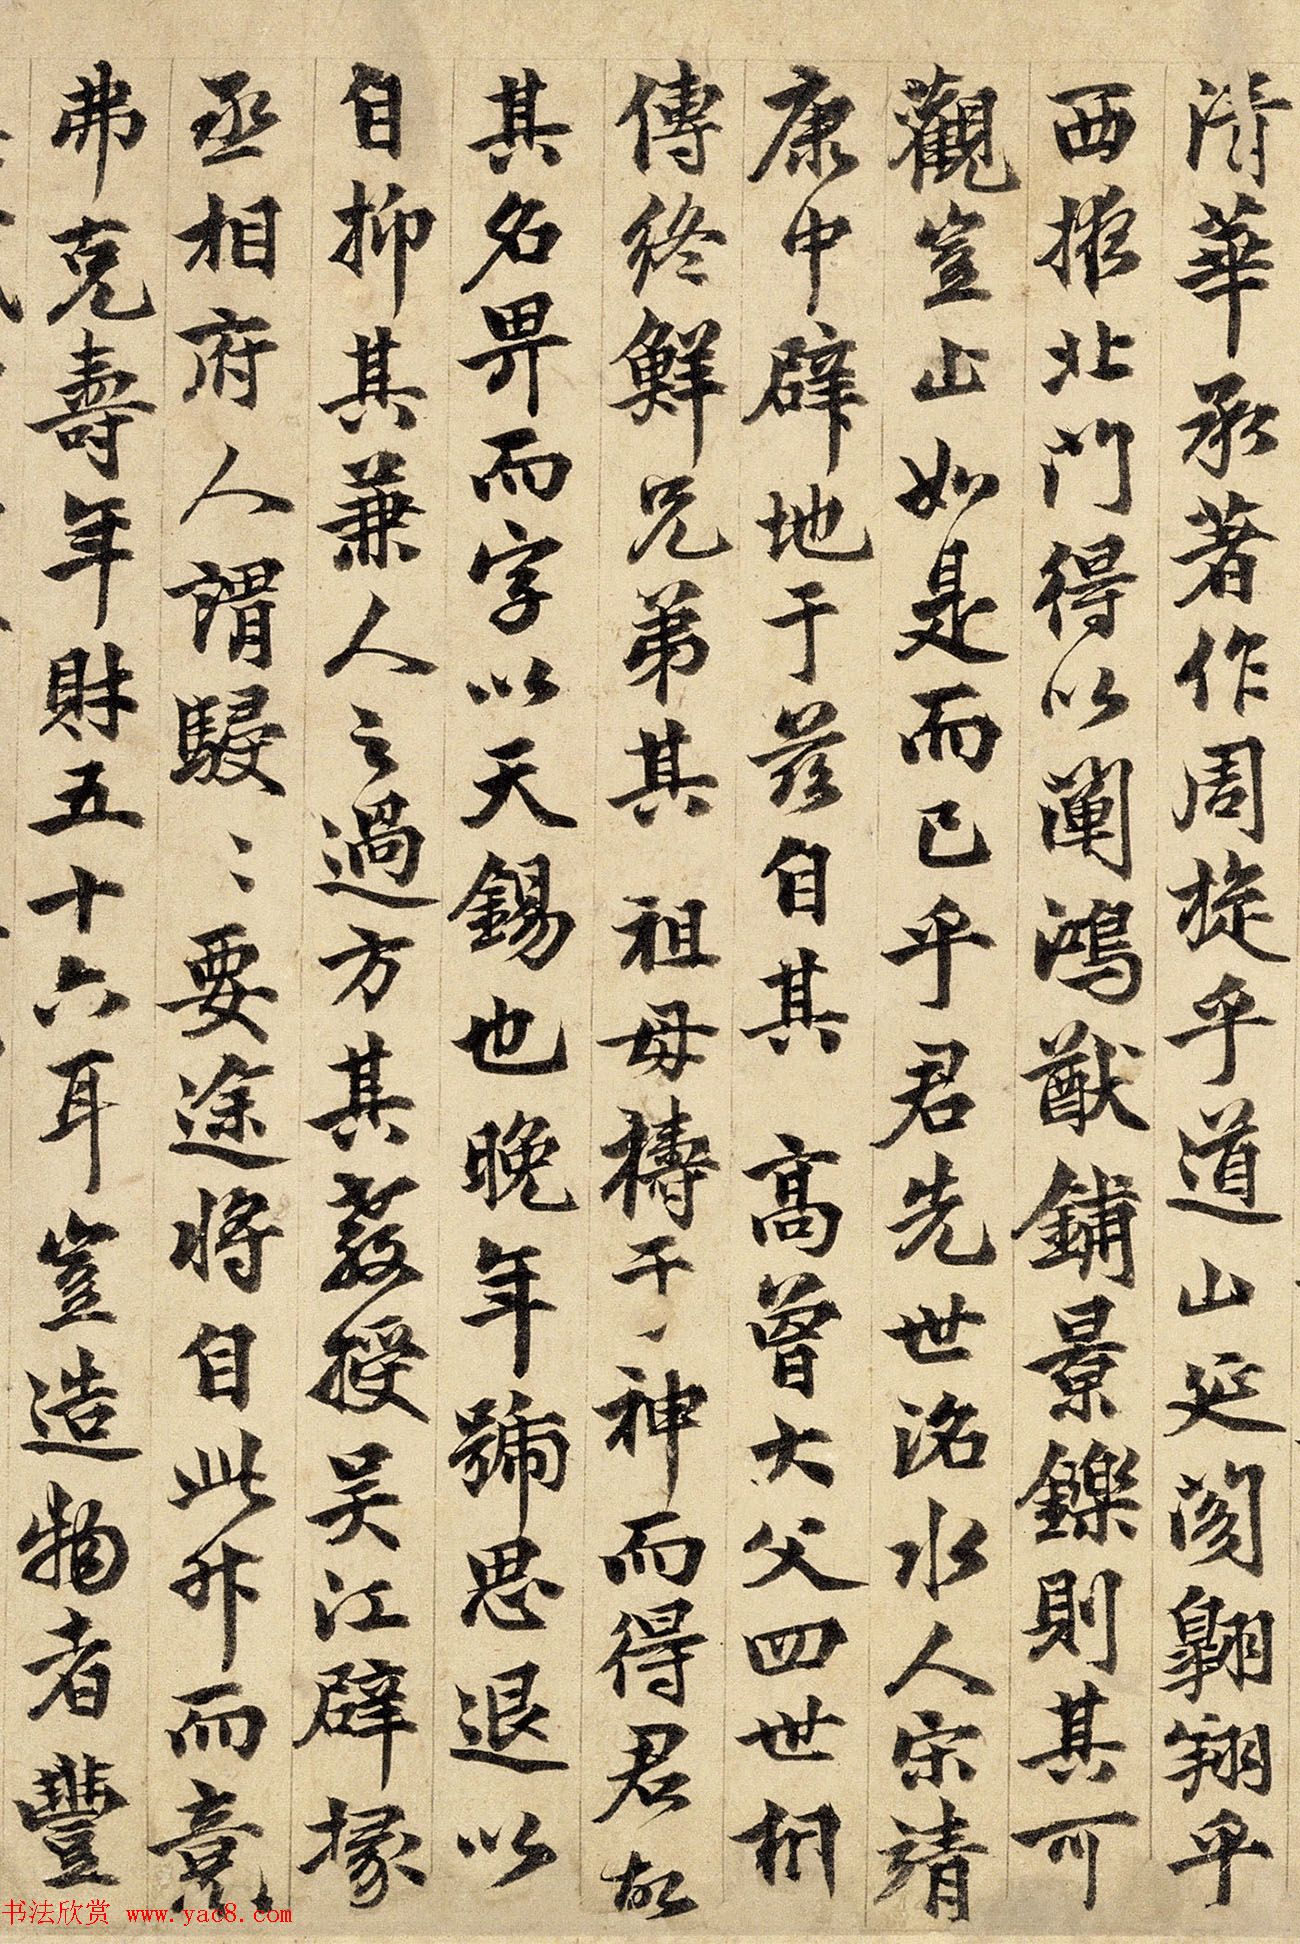 清華承著作周旋乎道山延閣翱翔乎
西掖北門得以闡鴻猷鋪景鑠則其可
觀豈止如是而已乎君先世洺水人宋靖
康中辟地于茲自其高曾大父四世相
傳終鮮兄弟其祖母禱于神而得君故
其名畀而字以天錫也晚年號思退以
自抑其兼人之過方其教授吳江辟掾
丞相府人謂駸〻要途將自此升而竟
弗克壽年財五十六耳豈造物者豐
书法欣赏 www.yac8.com